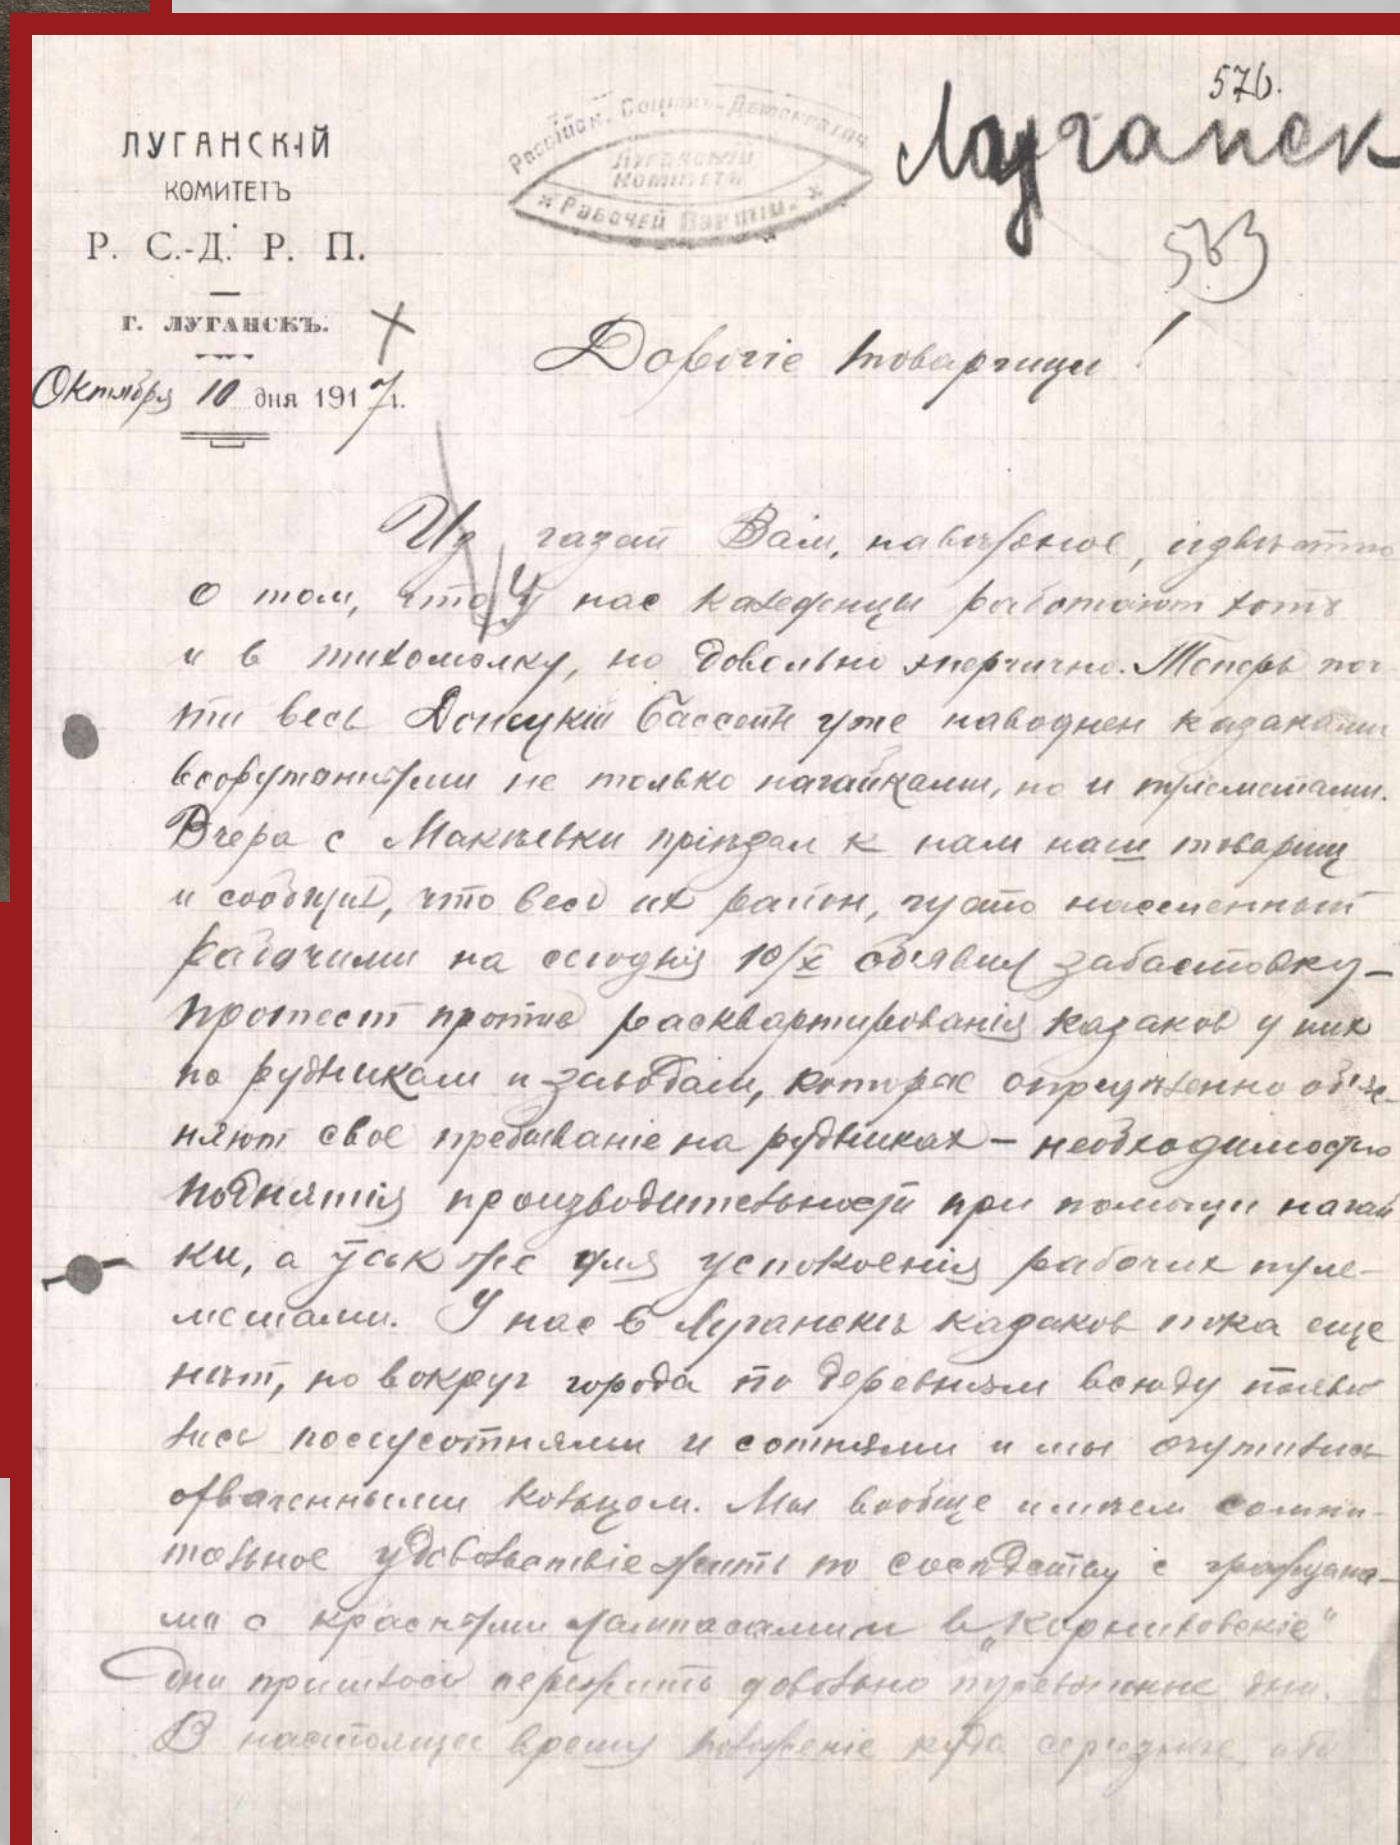 576.
Луганск
ЛУГАНСКІЙ
КОМИТЕТЪ
Р. С.-Д. Р. П.
Г. ЛУГАНСКЪ.
Октября 10 дня 1917 г.
Російск. Соціал-Демократич.
ЛУГАНСКІЙ
КОМИТЕТЪ
* Рабочей Партіи. *
Дорогіе товарищи!
Из газет Вам, навѣрное, извѣстно
о том, что у нас каледенцы работают хоть
и в тихомолку, но довольно энергично. Теперь поч
ти весь Донецкій бассейн уже наводнен казаками
вооруженными не только нагайками, но и пулеметами.
Вчера с Макѣевки пріѣхал к нам наш товарищ
и сообщил, что весь их район, густо населенный
рабочими на сегодня 10/X объявил забастовку –
протест против расквартированія казаков у них
по рудникам и заводам, которые определенно объяс-
няют свое пребываніе на рудниках – необходимостью
поднятія производительности при помощи нагай
ки, а также для успокоенія рабочих пуле-
метами. У нас в Луганскѣ казаков пока еще
нѣт, но вокруг города по деревням всюду появи
лись полусотнями и сотнями и мы очутились
охваченными кольцом. Мы вообще имѣем сомни-
тельное удовольствіе жить по сосѣдству с граждана-
ми с красными лампасами и в „Корниловскіе"
дни пришлось пережить довольно
В настоящее время положеніе куда серьезнѣе, ибо